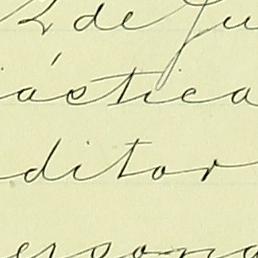 2 de Ju
ástica
ditor
ersona